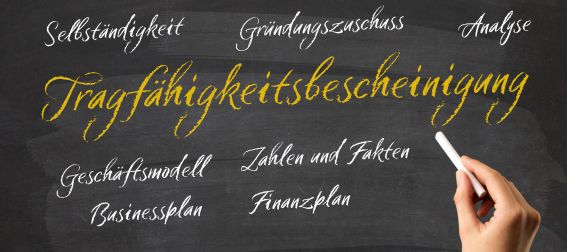 Selbständigkeit Gründungszuschuss Analyse
Tragfähigkeitsbescheinigung
Geschäftsmodell Zahlen und Fakten
Businessplan Finanzplan